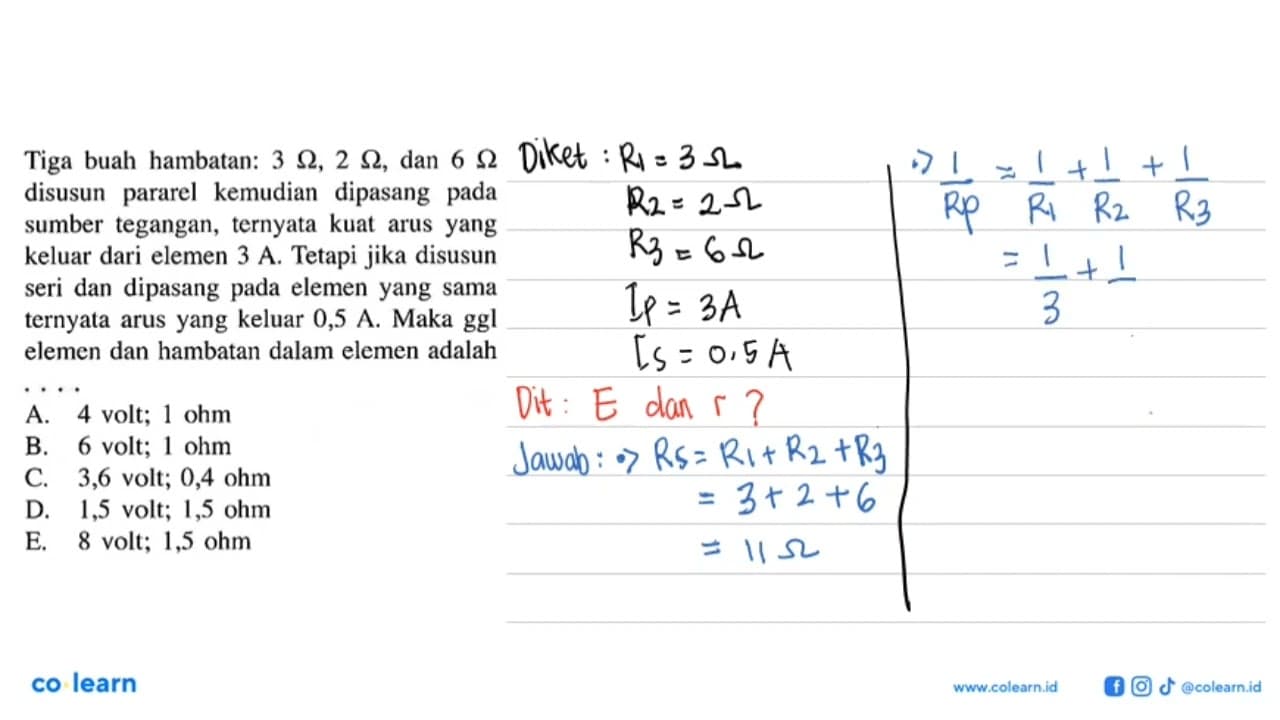 Tiga buah hambatan: 3 Ω, 2 Ω, dan 6 Ω
disusun pararel kemudian dipasang pada
sumber tegangan, ternyata kuat arus yang
keluar dari elemen 3 A. Tetapi jika disusun
seri dan dipasang pada elemen yang sama
ternyata arus yang keluar 0,5 A. Maka ggl
elemen dan hambatan dalam elemen adalah
. . . .
A. 4 volt; 1 ohm
B. 6 volt; 1 ohm
C. 3,6 volt; 0,4 ohm
D. 1,5 volt; 1,5 ohm
E. 8 volt; 1,5 ohm
Diket : R1 = 3 Ω
R2 = 2 Ω
R3 = 6 Ω
Ip = 3A
Is = 0,5 A
Dit : E dan r ?
Jawab : •> Rs = R1 + R2 + R3
= 3 + 2 + 6
= 11 Ω
•> 1/Rp = 1/R1 + 1/R2 + 1/R3
= 1/3 + 1/
co learn
www.colearn.id
@colearn.id